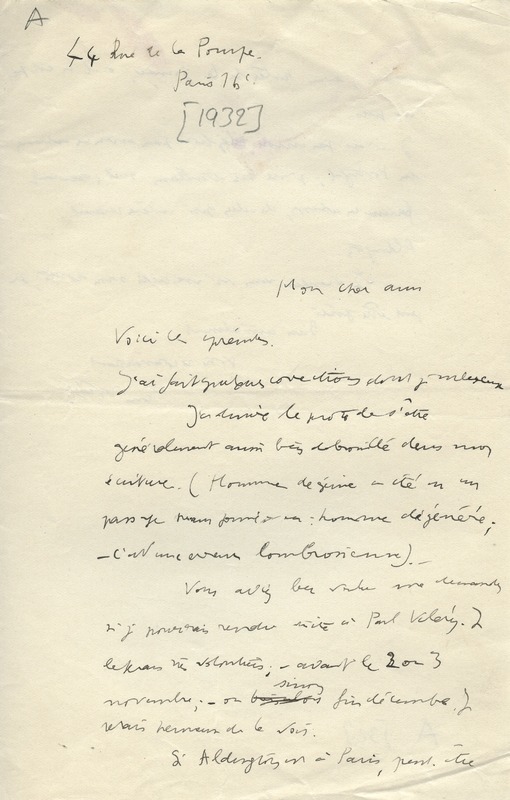 A
44 Rue de la Pompe.
Paris 16e.
[1932]
Mon cher ami
Voici les épreuves.
J'ai fait quelques corrections dont je m'excuse
J'admire le prote de s'être
généralement aussi bien débrouillé dans mon
écriture. (Homme de génie a été en un
passage transformé en : homme dégénéré ;
— c'est une erreur lombrosienne). —
Vous avez bien voulu me demander
si je pourrais rendre visite à Paul Valéry. Je
le ferais très volontiers ; — avant le 2 ou 3
novembre ; — ou sinon fin décembre. Je
serais heureux de le voir.
Si Aldington est à Paris, peut-être